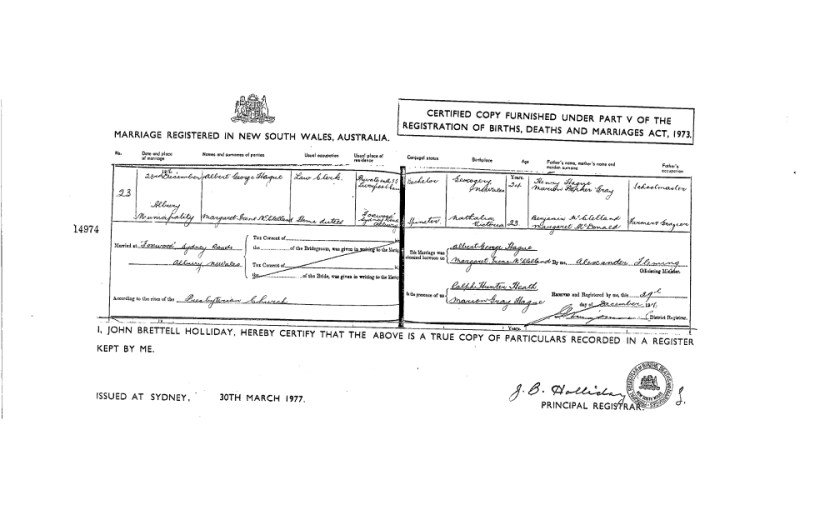 CERTIFIED COPY FURNISHED UNDER PART V OF THE
REGISTRATION OF BIRTHS, DEATHS AND MARRIAGES ACT, 1973.
MARRIAGE REGISTERED IN NEW SOUTH WALES, AUSTRALIA.
No. Date and place of marriage Names and surnames of parties Usual occupation Usual place of residence Conjugal status Birthplace Age Father's name, mother's name and Father's occupation
Years
December Albert George Hague Law Clerk Bachelor Gerogery 24 Henry Hague Schoolmaster
NSWales Marion Gray
23
Albury
Municipality Margaret Irene McClelland Home duties "Foxwood" Albury Spinster Nathalia Victoria 23 Benjamin McClelland Farmer Grazier
Margaret McDonald
14974
Married at "Foxwood" Sydney Road
Albury NSWales
The Consent of
the of the Bridegroom, was given in writing to the
The Consent of
the of the Bride, was given in writing to the
According to the rites of the Presbyterian Church
This Marriage was between us
Albert George Hague
Margaret Irene McClelland By me, Alexander Fleming
Officiating Minister.
In the presence of us
Ralph Hunter Heath
Marion Gray Hague
Received and Registered by me, this
day December
District Registrar.
I, JOHN BRETTELL HOLLIDAY, HEREBY CERTIFY THAT THE ABOVE IS A TRUE COPY OF PARTICULARS RECORDED IN A REGISTER
KEPT BY ME.
ISSUED AT SYDNEY, 30TH MARCH 1977.
J. B. Holliday
PRINCIPAL REGISTRAR.